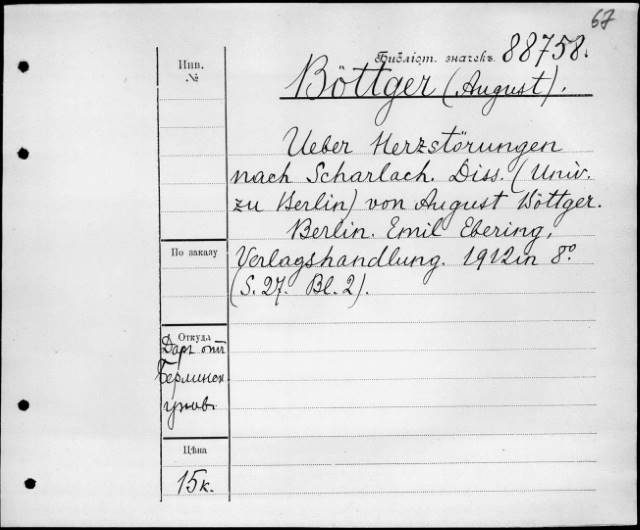 67
Библіот. значекъ 88758.
Böttger (August).
Инв.
№
Ueber Herzstörungen
nach Scharlach. Diss. (Univ.
zu Berlin) von August Böttger.
Berlin. Emil Ebering,
Verlagshandlung. 1912 in 8º
(S. 27. Bl. 2).
По заказу
Откуда
Даръ отъ
Берлинск.
унив.
Цѣна
15 к.